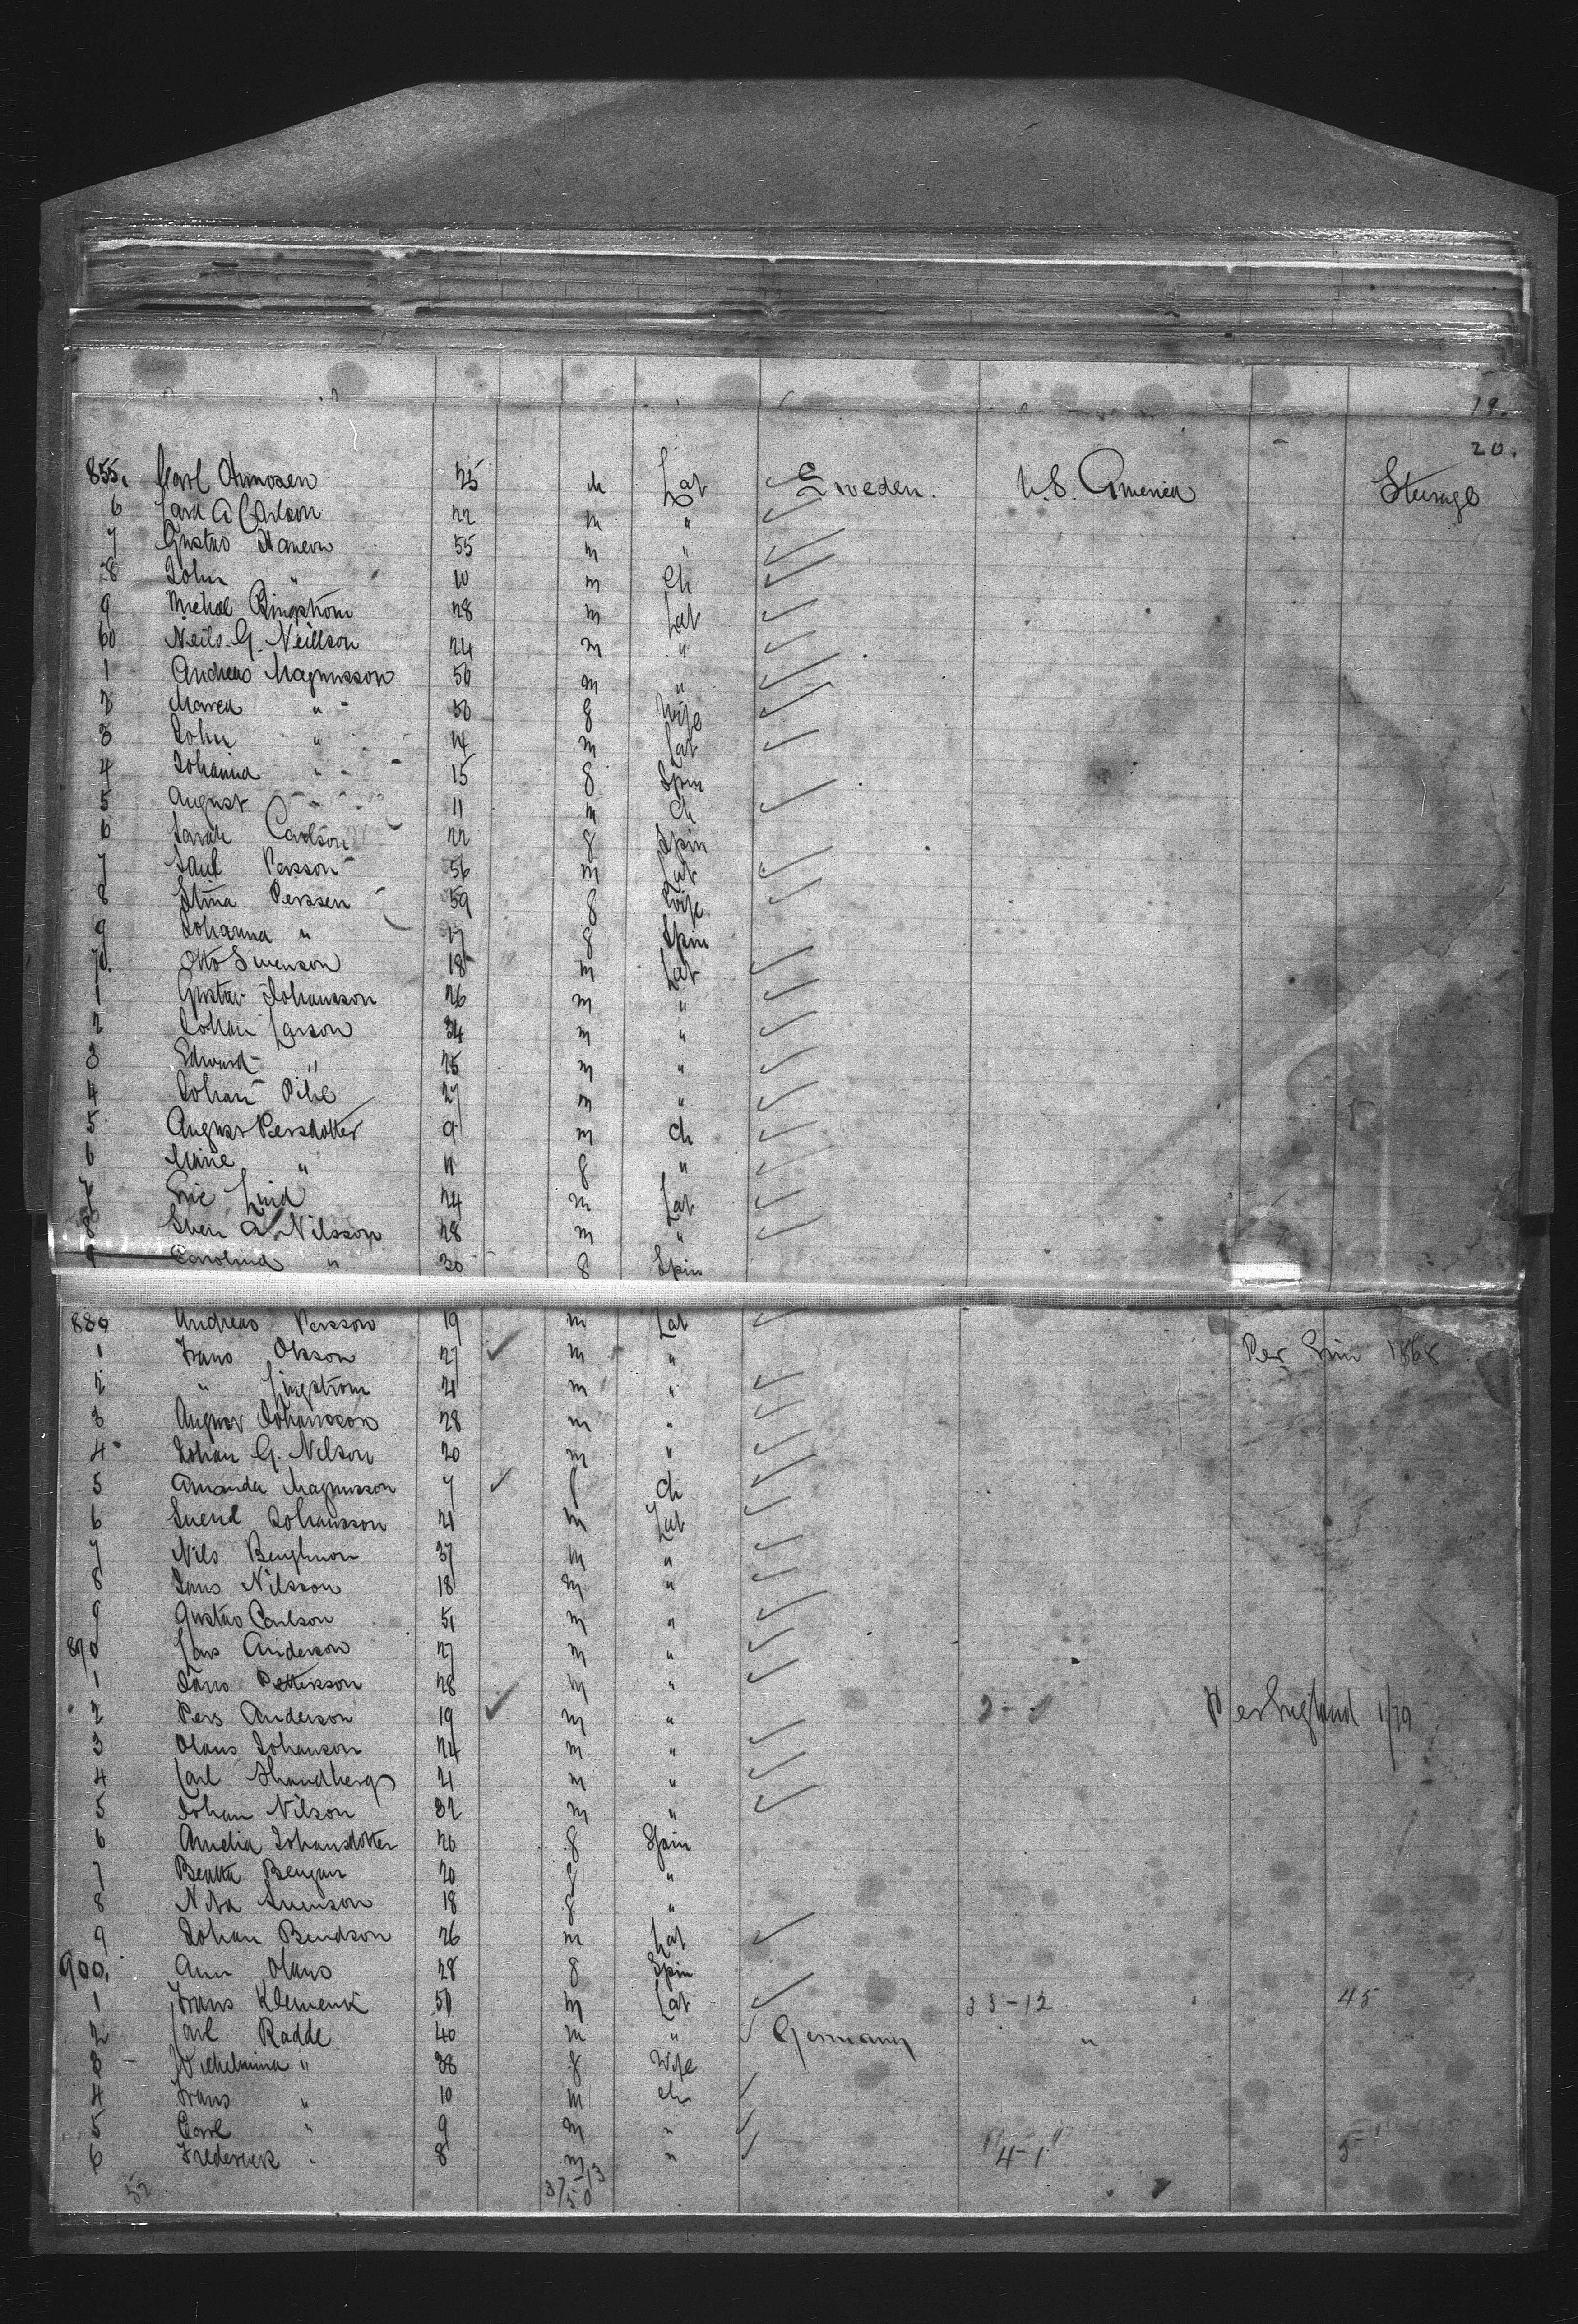 19.
20.
855. Carl 25 m Lab Sweden. U.S. America Steerage
6 A Carlson 22 m "
7 Gustav 55 m "
8 John " 10 m Ch
9 Michal Ringstrom 28 m Lab
60 Neils. G. Neillson 24 m "
1 Andreas Magnusson 50 m "
2 Maria " 50 f Wife
3 John " 14 m Lab
4 Johanna " 15 f Spin
5 August " 11 m Ch
6 Sarah Carlson 22 f Spin
7 Persson 56 m Lab
8 Stina Perssen 59 f Wife
9 Johanna " 27 f Spin
70. Otto Swenson 18 m Lab
1 Gustav Johansson 26 m "
2 Johan Larson 34 m "
3 Edward " 25 m "
4 Johan Pihl 27 m "
5 August Persdotter 9 m Ch
6 " 11 f "
7 Eric Lind 24 m Lab
8 Sven A. Nilsson 28 m "
9 Carolina " 30 f Spin
880 Andreas Persson 19 m Lab
1 Frans Olsson 27 m " Per 1868
2 " Ljungstrom 21 m "
3 August Johansson 28 m "
4 Johan G. Nelson 20 m "
5 Amanda Magnusson 7 f Ch
6 Svend Johansson 21 m Lab
7 Nils 37 m "
8 Jans Nilsson 18 m "
9 Gustav Carlson 51 m "
890 Lars Anderson 27 m "
1 Jans Petterson 28 m "
2 Pers Anderson 19 m " 1/79
3 Olaus Johanson 24 m "
4 Carl 21 m "
5 Johan Nilson 32 m "
6 Amelia Johansdotter 20 f Spin
7 Beatta 20 f "
8 Svenson 18 f "
9 Johan Bendson 26 m Lab
900. Ann Olaus 28 f Spin
1 Frans Klemenk 50 m Lab 33-12 45
2 Carl Radde 40 m " Germany "
3 Wilhelmina " 38 f Wife
4 Frans " 10 m Ch
5 Carl " 9 m "
6 Frederick " 8 m " 4-1 5
52 37-13
50